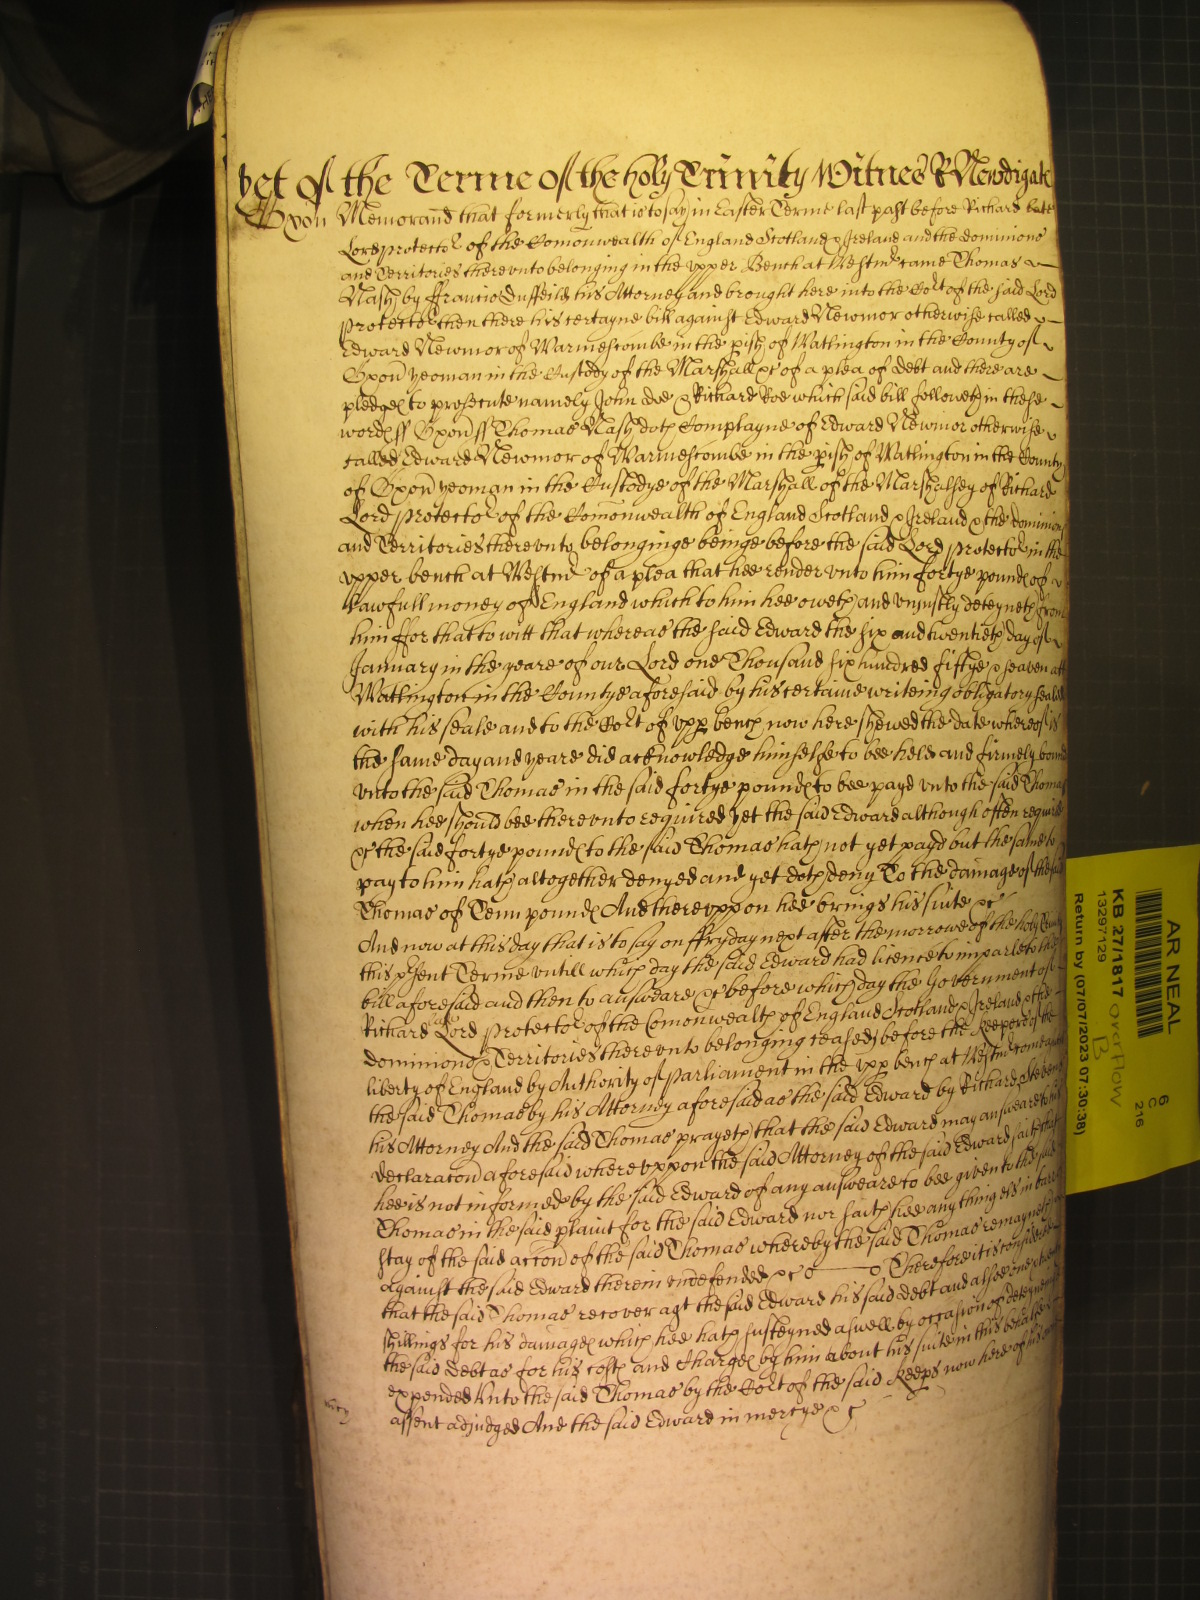 yet of the Terme of the holy Trinity Witnes R Newdigate
Oxon Memorand that formerly that is to say in Easter Terme last past before Richard late
Lord Protector of the Comonwealth of England Scotland & Ireland and the dominions
and Territories therevnto belonging in the vpper Bench at Westmr came Thomas
Nash by ffrancis Duffeild his Attorney and brought here into the Cort of the said Lord
Protector then there his certayne bill against Edward Newmor otherwise called
Edward Newmor of Warmescombe in the pish of Watlington in the County of
Oxon yeoman in the Custody of the Marshall &c of a plea of debt and there are
pledges to prosecute namely John Doe & Richard Roe which said bill followeth in these
wordes ss Oxon ss Thomas Nash doth Complayne of Edward Newmor otherwise
called Edward Newmor of Warmescombe in the pish of Watlington in the County
of Oxon yeoman in the Custodye of the Marshall of the Marshalsey of Richard
Lord Protector of the Comonwealth of England Scotland & Ireland & the dominions
and Territories therevnto belonginge beinge before the said Lord Protector in the
vpper bench at Westmr of a plea that hee render vnto him fortye poundes of
Lawfull money of England which to him hee oweth and vniustly deteyneth from
him ffor that to witt that whereas the said Edward the six and twentieth day of
January in the yeare of our Lord one Thousand six hundred fiftye & seaven att
Watlington in the Countye aforesaid by his certaine writeing obligatory sealed
with his seale and to the Cort of vpp bench now here shewed the date whereof is
the same day and yeare did acknowledge himselfe to bee held and firmely bound
vnto the said Thomas in the said fortye poundes to bee payd vnto the said Thomas
when hee should bee therevnto required yet the said Edward although often required
&c the said fortye poundes to the said Thomas hath not yet payd but the same to
pay to him hath altogether denyed and yet doth deny To the damage of the said
Thomas of Tenn poundes And therevppon hee brings his suite &c
And now at this day that is to say on ffryday next after the morrowe of the holy Trinity
this psent Terme vntill which day the said Edward had licence to imparle to the
bill aforesaid and then to answeare &c before which day the Government of
Richard late Lord Protector of the Comonwealth of England Scotland & Ireland & the
dominions & Territories therevnto belonging ceased before the Keepers of the
liberty of England by Authority of Parliament in the vpp bench at Westmr come aswell
the said Thomas by his Attorney aforesaid as the said Edward by Richard Stevens
his Attorney And the said Thomas prayeth that the said Edward may answeare to his
declaracon aforesaid wherevppon the said Attorney of the said Edward saith that
hee is not informed by the said Edward of any answeare to bee given to the said
Thomas in the said plaint for the said Edward nor saith hee any thing els in barr or
stay of the said accon of the said Thomas whereby the said Thomas remayneth
against the said Edward therein vndefended &c Therefore it is considered
that the said Thomas recover agt the said Edward his said debt and alsoe
shillings for his damages which hee hath susteyned aswell by occasion of deteyneing
the said debt as for his costs and Charges by him about his suite in this behalfe
expended vnto the said Thomas by the Cort of the said Keeps now here of his
assent adjudged And the said Edward in mercye &c
mercy
AR NEAL
KB 27/1817 overflow
B
13297129
Return by (07/07/2023 07:30:38)
6
C
216